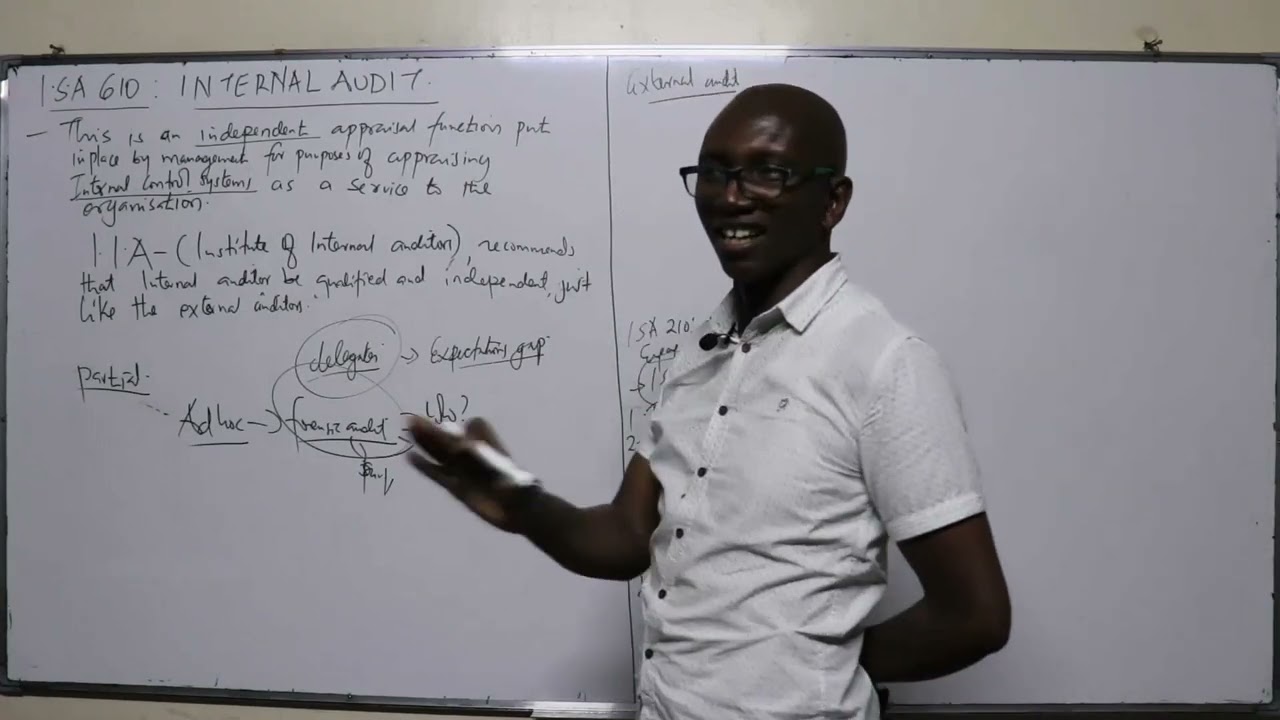 ISA 610: INTERNAL AUDIT.
- This is an independent appraisal function put
in place by management for purposes of appraising
Internal control systems as a service to the
organisation.
I.I.A - (Institute of Internal auditors), recommends
that Internal auditor be qualified and independent, just
like the external auditors.
delegation → Expectations gap
partial.
Ad hoc → forensic audit → Who?
External audit
ISA 210:
1
2